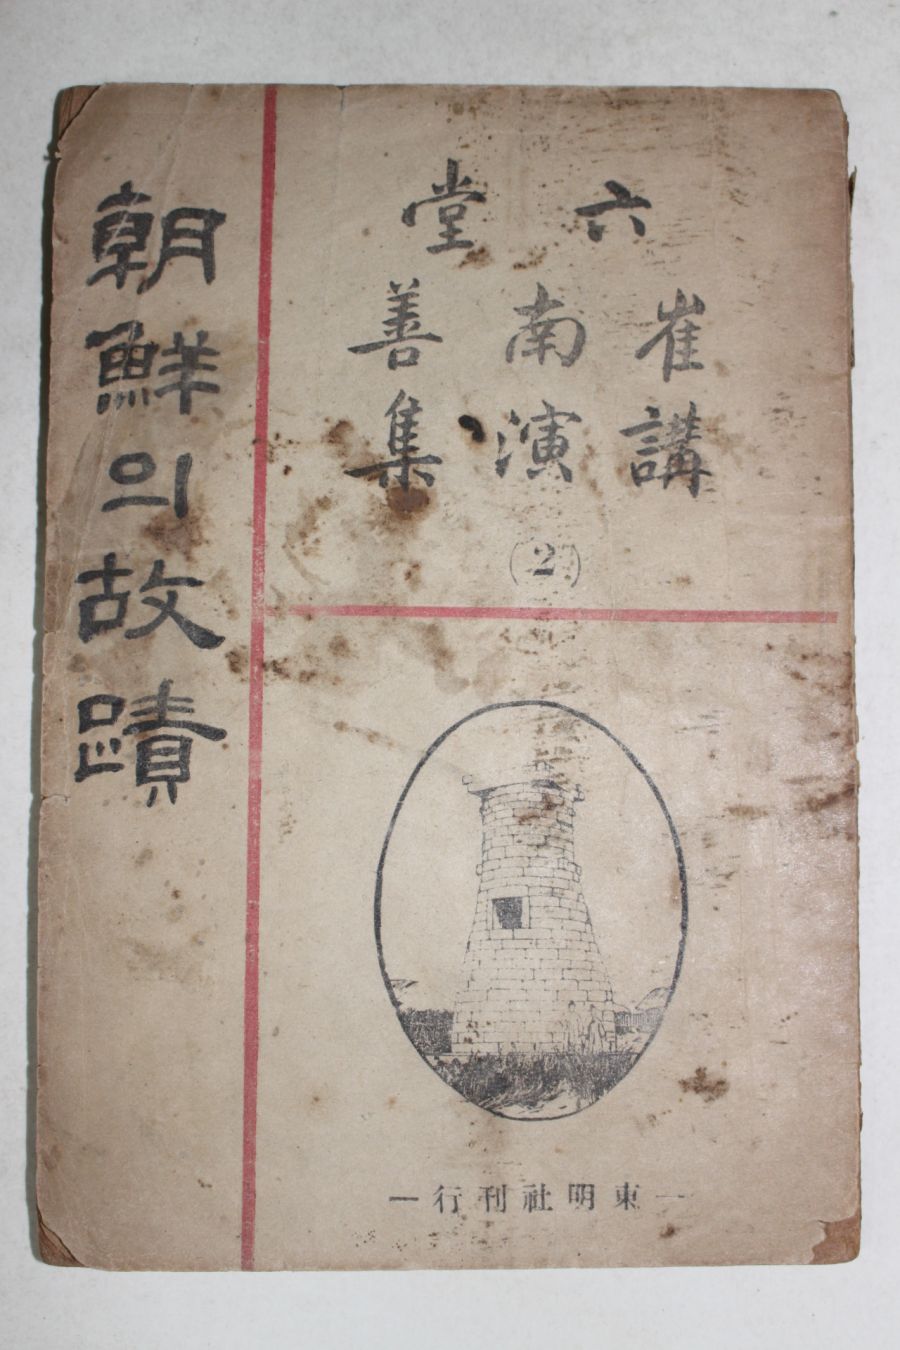 六堂
崔南善
講演集
(2)
朝鮮의故蹟
— 東明社刊行 —